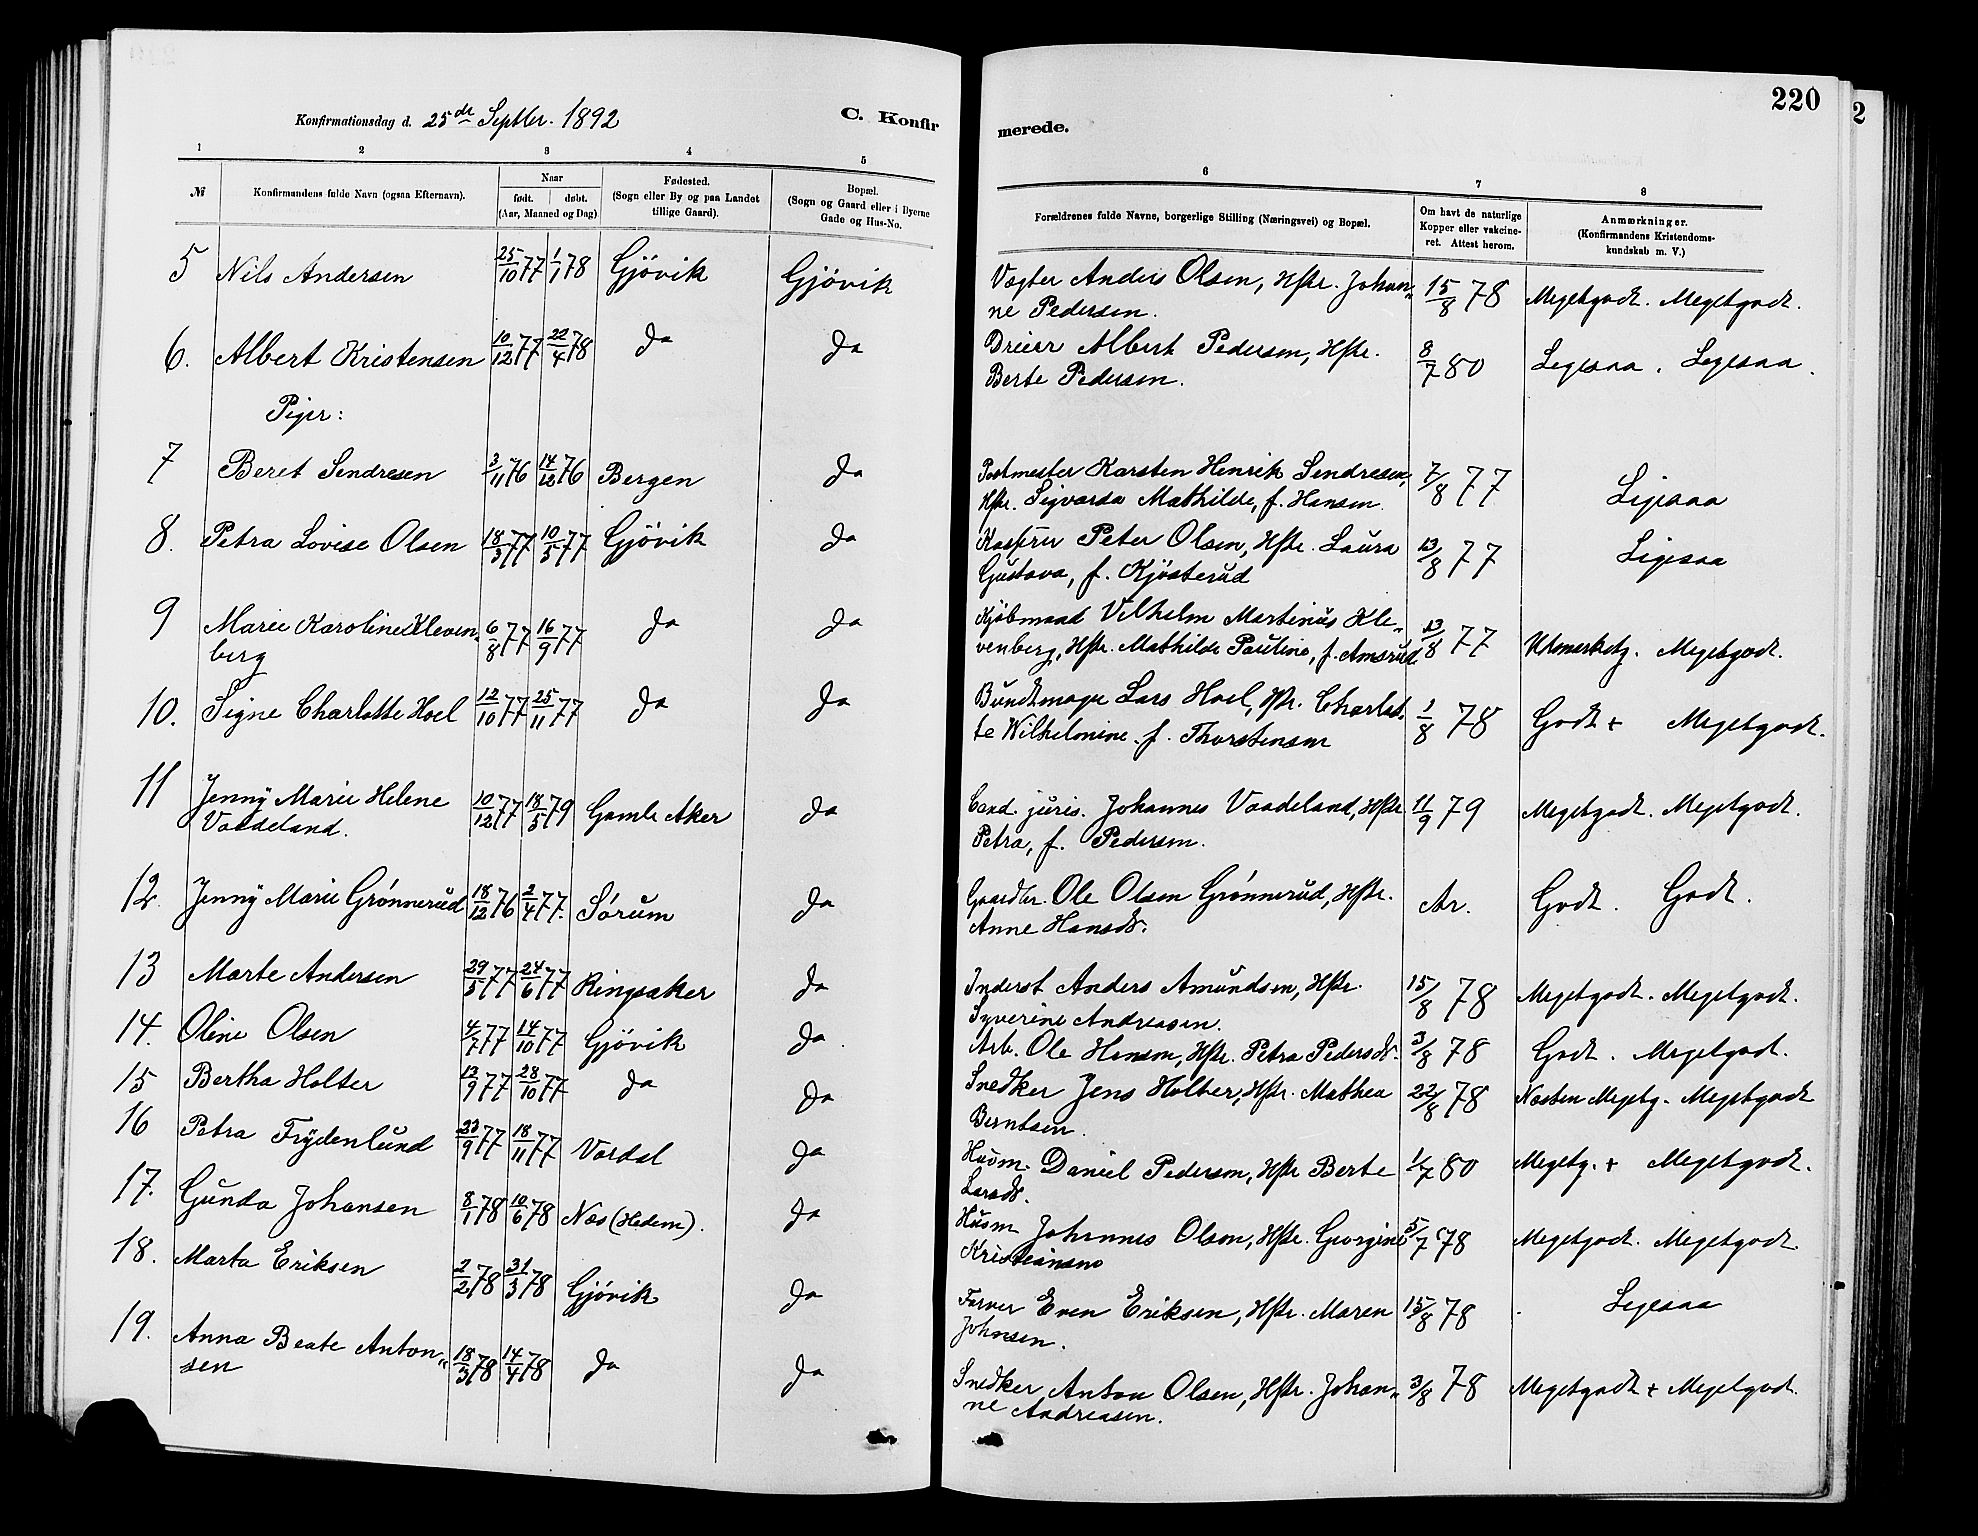 220
2
Konfirmationsdag d. 25de Septbr. 1892
C. Konfirmerede.
1 2 3 4 5 6 7 8
№ Konfirmandens fulde Navn (ogsaa Efternavn). Naar født. døbt. (Aar, Maaned og Dag) Fødested. (Sogn eller By og paa Landet tillige Gaard). Bopæl. (Sogn og Gaard eller i Byerne Gade og Hus-No. Forældrenes fulde Navne, borgerlige Stilling (Næringsvei) og Bopæl. Om havt de naturlige Kopper eller vakcineret. Attest herom. Anmærkninger. (Konfirmandens Kristendomskundskab m. V.)
5 Nils Andersen 25/10 77 1/1 78 Gjövik Gjövik Vægter Anders Olsen, Hstr. Johan„
ne Pedersen. 15/8 78 Megetgodt. Megetgodt.
6. Albert Kristensen 10/12 77 22/4 78 Do Do Dreier Albert Pedersen, Hstr.
Berte Pedersen. 8/7 80 Ligesaa. Ligesaa.
Piger:
7 Beret Sendresen 3/11 76 14/12 76 Bergen Do Postmester Karsten Henrik Sendresen,
Hstr. Sigvarda Mathilde, f. Hansen 7/8 77 Ligesaa
8. Petra Lovise Olsen 18/3 77 10/5 77 Gjövik Do Kasserer Peter Olsen, Hstr. Laura
Gustava, f. Kjösterud 13/8 77 Ligesaa
9 Marie Karoline Kleven„
berg 6/8 77 16/9 77 Do Do Kjöbmand Vilhelm Martinus Kle„
venberg, Hstr. Mathilde Pauline, f. Amsrud 13/8 77 Utmerketg. Megetgodt.
10. Signe Charlotte Hoel 12/10 77 25/11 77 Do Do Bundtmager Lars Hoel, Hstr. Charlot„
te Wilhelmine f. Thorstensen 1/8 78 Godt + Megetgodt.
11 Jenny Marie Helene
Vaadeland. 10/12 77 18/5 79 Gamle Aker Do Cand. juris. Johannes Vaadeland, Hstr
Petra, f. Pedersen. 11/9 79 Megetgodt. Megetgodt.
12. Jenny Marie Grønnerud 18/12 76 2/4 77. Sörum Do Gaardbr. Ole Olsen Grønnerud, Hstr.
Anne Hansdr. Ar. Godt. Godt.
13 Marte Andersen 29/5 77 24/6 77 Ringsaker Do Inderst Anders Amundsen, Hstr.
Syverine Andreasen. 15/8 78 Megetgodt. Megetgodt.
14. Oline Olsen 4/7 77 14/10 77 Gjövik Do Arb. Ole Hansen, Hstr. Petra Pedersdr. 3/8 78 Godt. Megetgodt.
15 Bertha Holter 13/9 77 28/10 77 Do Do Snedker Jens Holter, Hstr. Mathea
Berntsen. 22/8 78 Næsten Megetg. Megetgodt
16 Petra Frydenlund 23/9 77 18/11 77 Vardal Do Husm. Daniel Pedersen, Hstr Berte
Larsdr. 1/7 80 Megetg. + Megetgodt.
17. Gunda Johansen 8/1 78 10/6 78 Næs (Hedem). Do Husm Johannes Olsen, Hstr. Georgine
Kristiansen 5/7 78 Megetgodt. Megetgodt
18. Marta Eriksen 2/2 78 31/3 78 Gjövik Do Farver Even Eriksen, Hstr. Maren
Johnsen. 15/8 78 Ligesaa
19. Anna Beate Anton„
sen 18/3 78 14/4 78 Do Do Snedker Anton Olsen, Hstr. Johan„
ne Andreasen. 3/8 78 Megetgodt + Megetgodt.